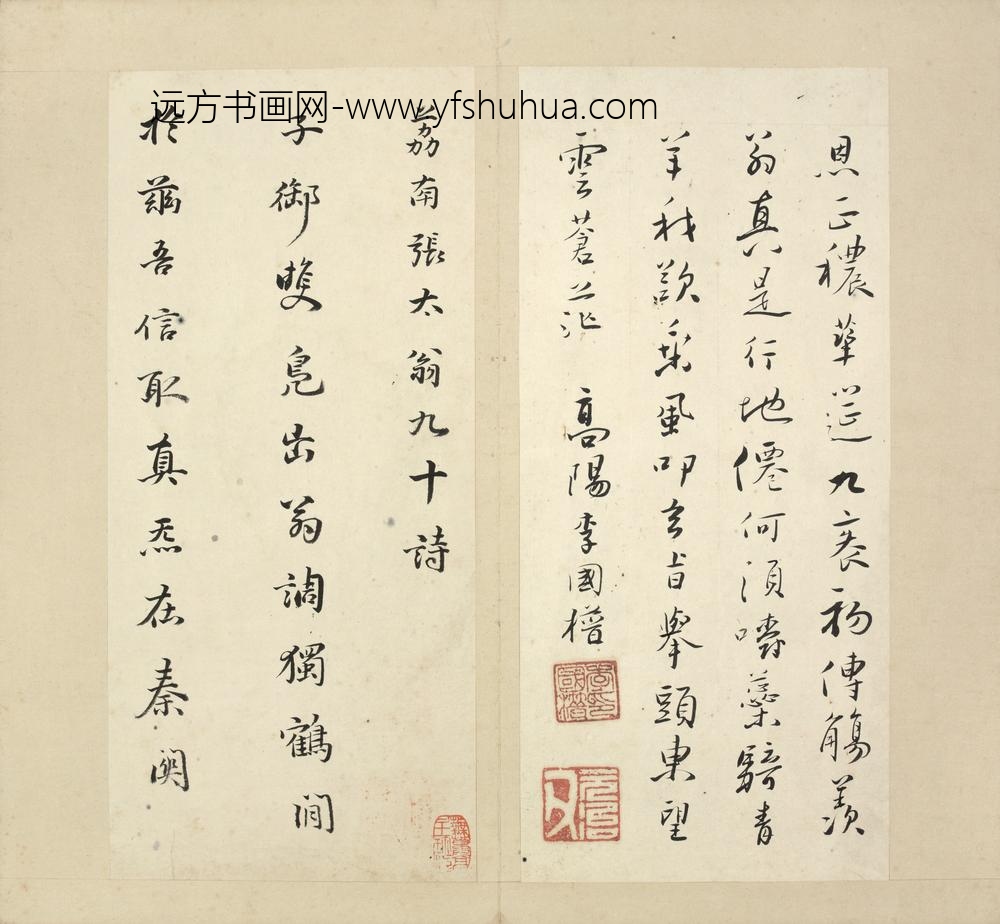 远方书画网-www.yfshuhua.com
恩正穠華筵九袠初傳觴羨
翁真是行地僊何須嚼蘂騎青
羊我歌乘風叩玄旨舉頭東望
雲蒼茫 高陽李國𣚴
荔南張太翁九十詩
子御雙鳧出翁調獨鶴閒
於茲吾信取真炁在秦關